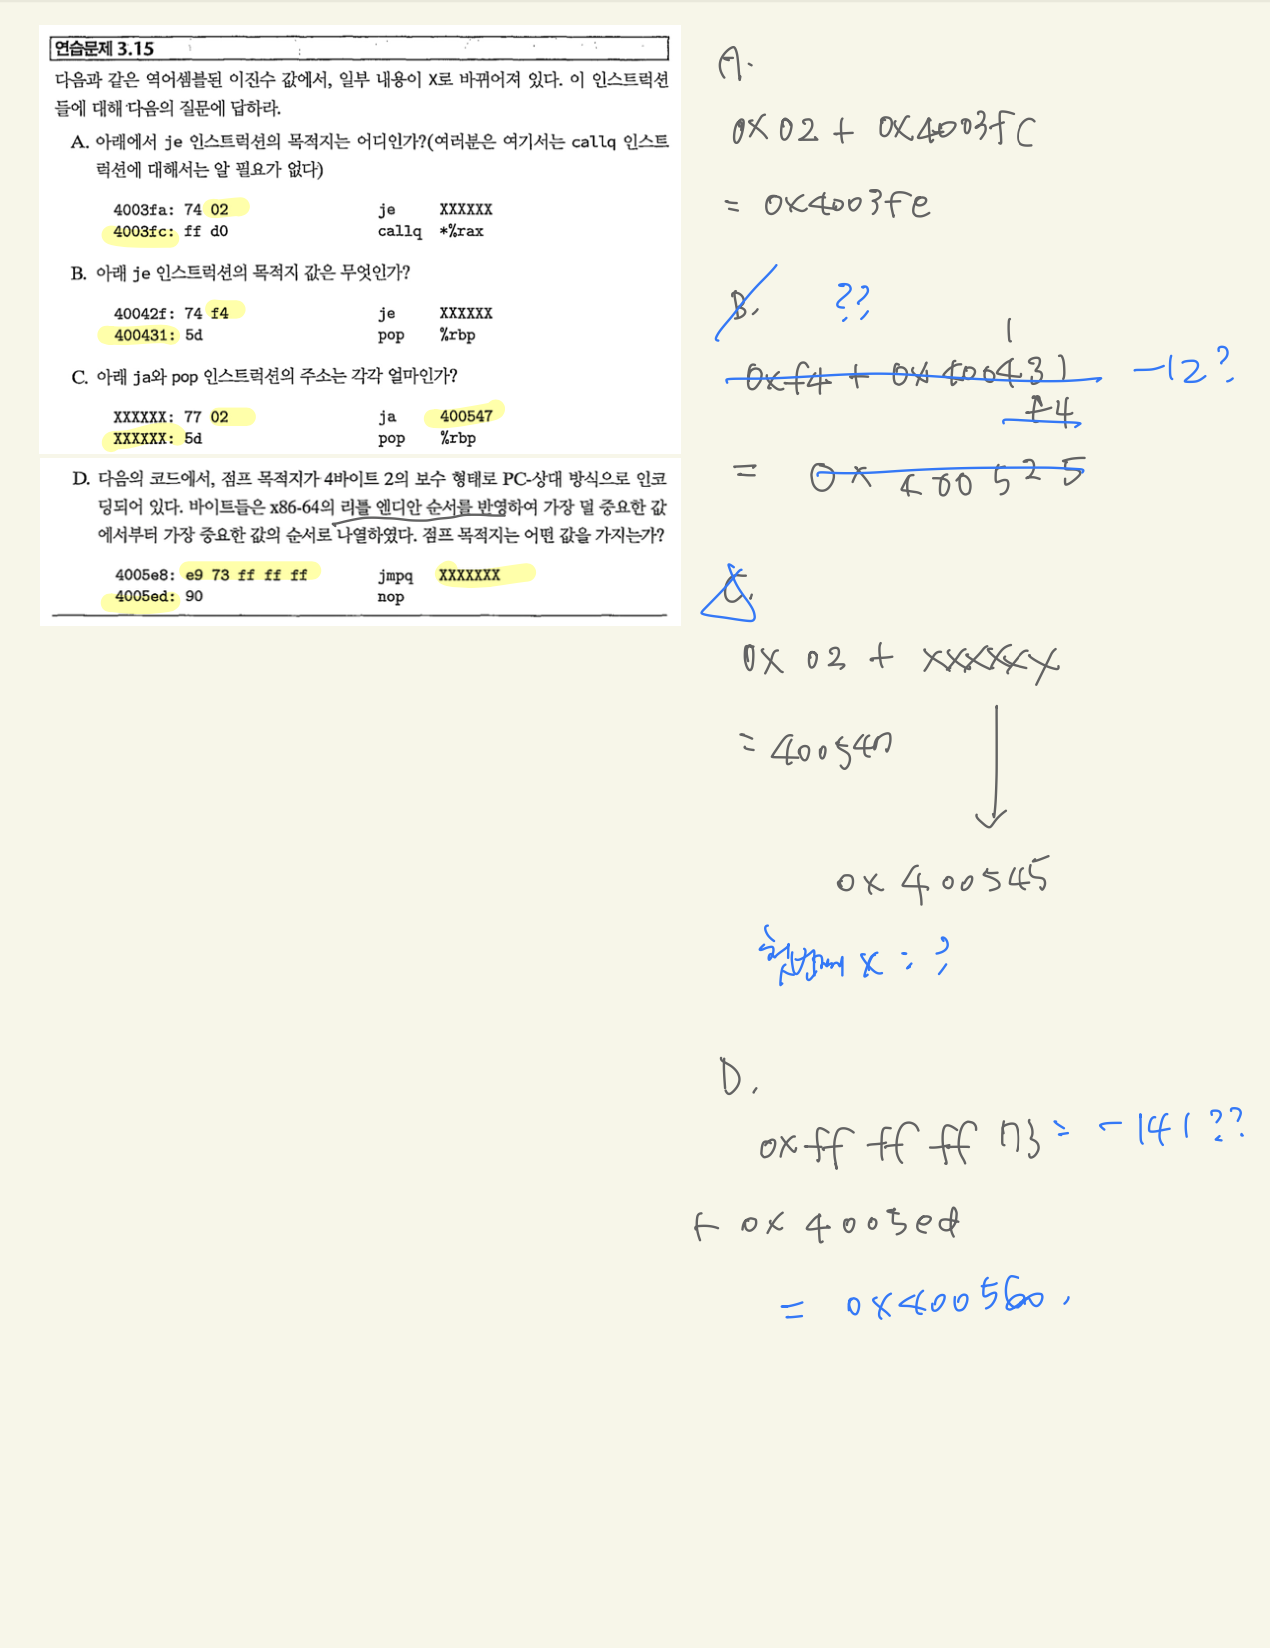 연습문제 3.15
다음과 같은 역어셈블된 이진수 값에서, 일부 내용이 X로 바뀌어져 있다. 이 인스트럭션
들에 대해 다음의 질문에 답하라.
A. 아래에서 je 인스트럭션의 목적지는 어디인가?(여러분은 여기서는 callq 인스트
럭션에 대해서는 알 필요가 없다)
4003fa: 74 02 je XXXXXX
4003fc: ff d0 callq *%rax
B. 아래 je 인스트럭션의 목적지 값은 무엇인가?
40042f: 74 f4 je XXXXXX
400431: 5d pop %rbp
C. 아래 ja와 pop 인스트럭션의 주소는 각각 얼마인가?
XXXXXX: 77 02 ja 400547
XXXXXX: 5d pop %rbp
D. 다음의 코드에서, 점프 목적지가 4바이트 2의 보수 형태로 PC-상대 방식으로 인코
딩되어 있다. 바이트들은 x86-64의 리틀 엔디안 순서를 반영하여 가장 덜 중요한 값
에서부터 가장 중요한 값의 순서로 나열하였다. 점프 목적지는 어떤 값을 가지는가?
4005e8: e9 73 ff ff ff jmpq XXXXXXX
4005ed: 90 nop
A.
0x02 + 0x4003fc
= 0x4003fe
B. ??
1
0xf4 + 0x400431 -12?
f4
= 0x400525
C.
0x 02 + xxxxxx
= 400547
0x400545
x : ?
D.
0xff ff ff 73 = -141??
+ 0x4005ed
= 0x400560.